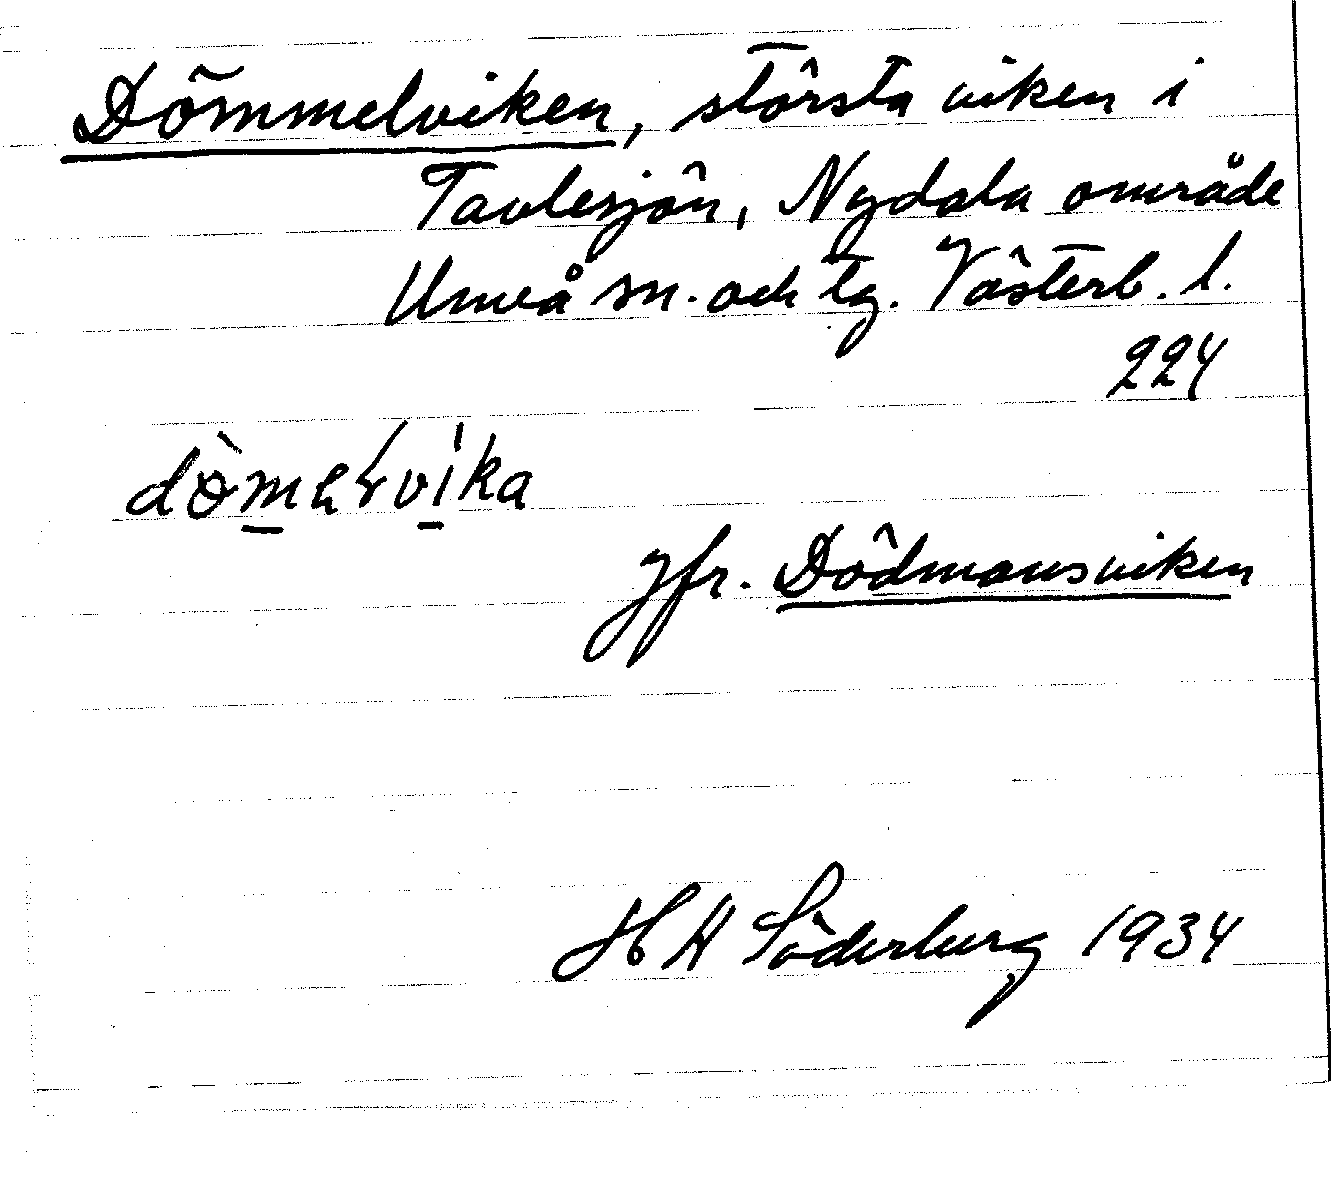 Dömmelviken, största viken i
Tavlesjön, Nydala område
Umeå sn. och tg. Västerb. l.
224
gfr. Dödmansviken
H H Söderberg 1934